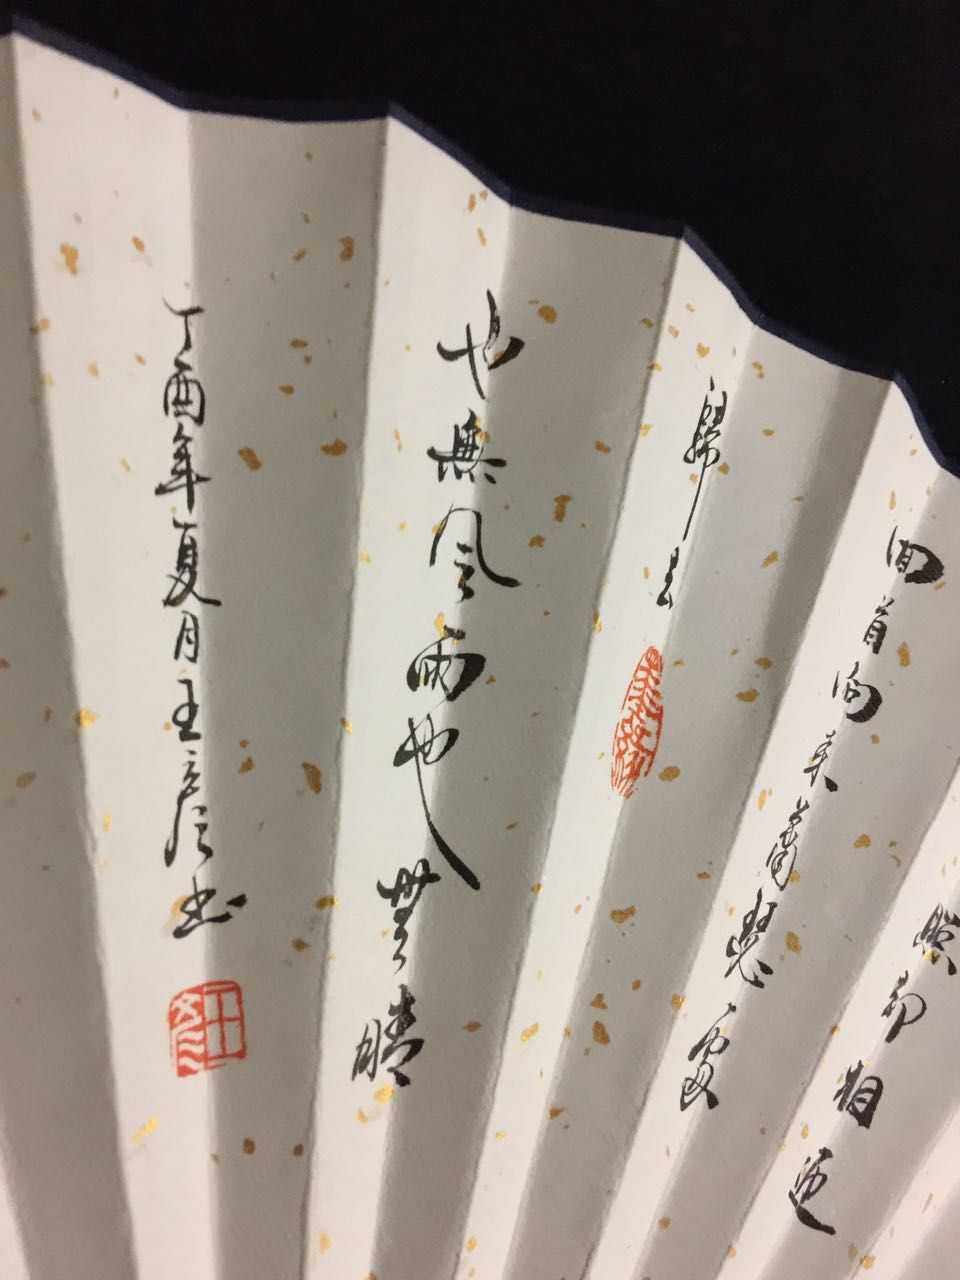 照却相迎
回首向来蕭瑟處
歸去
也無風雨也無晴
丁酉年夏月王彦书